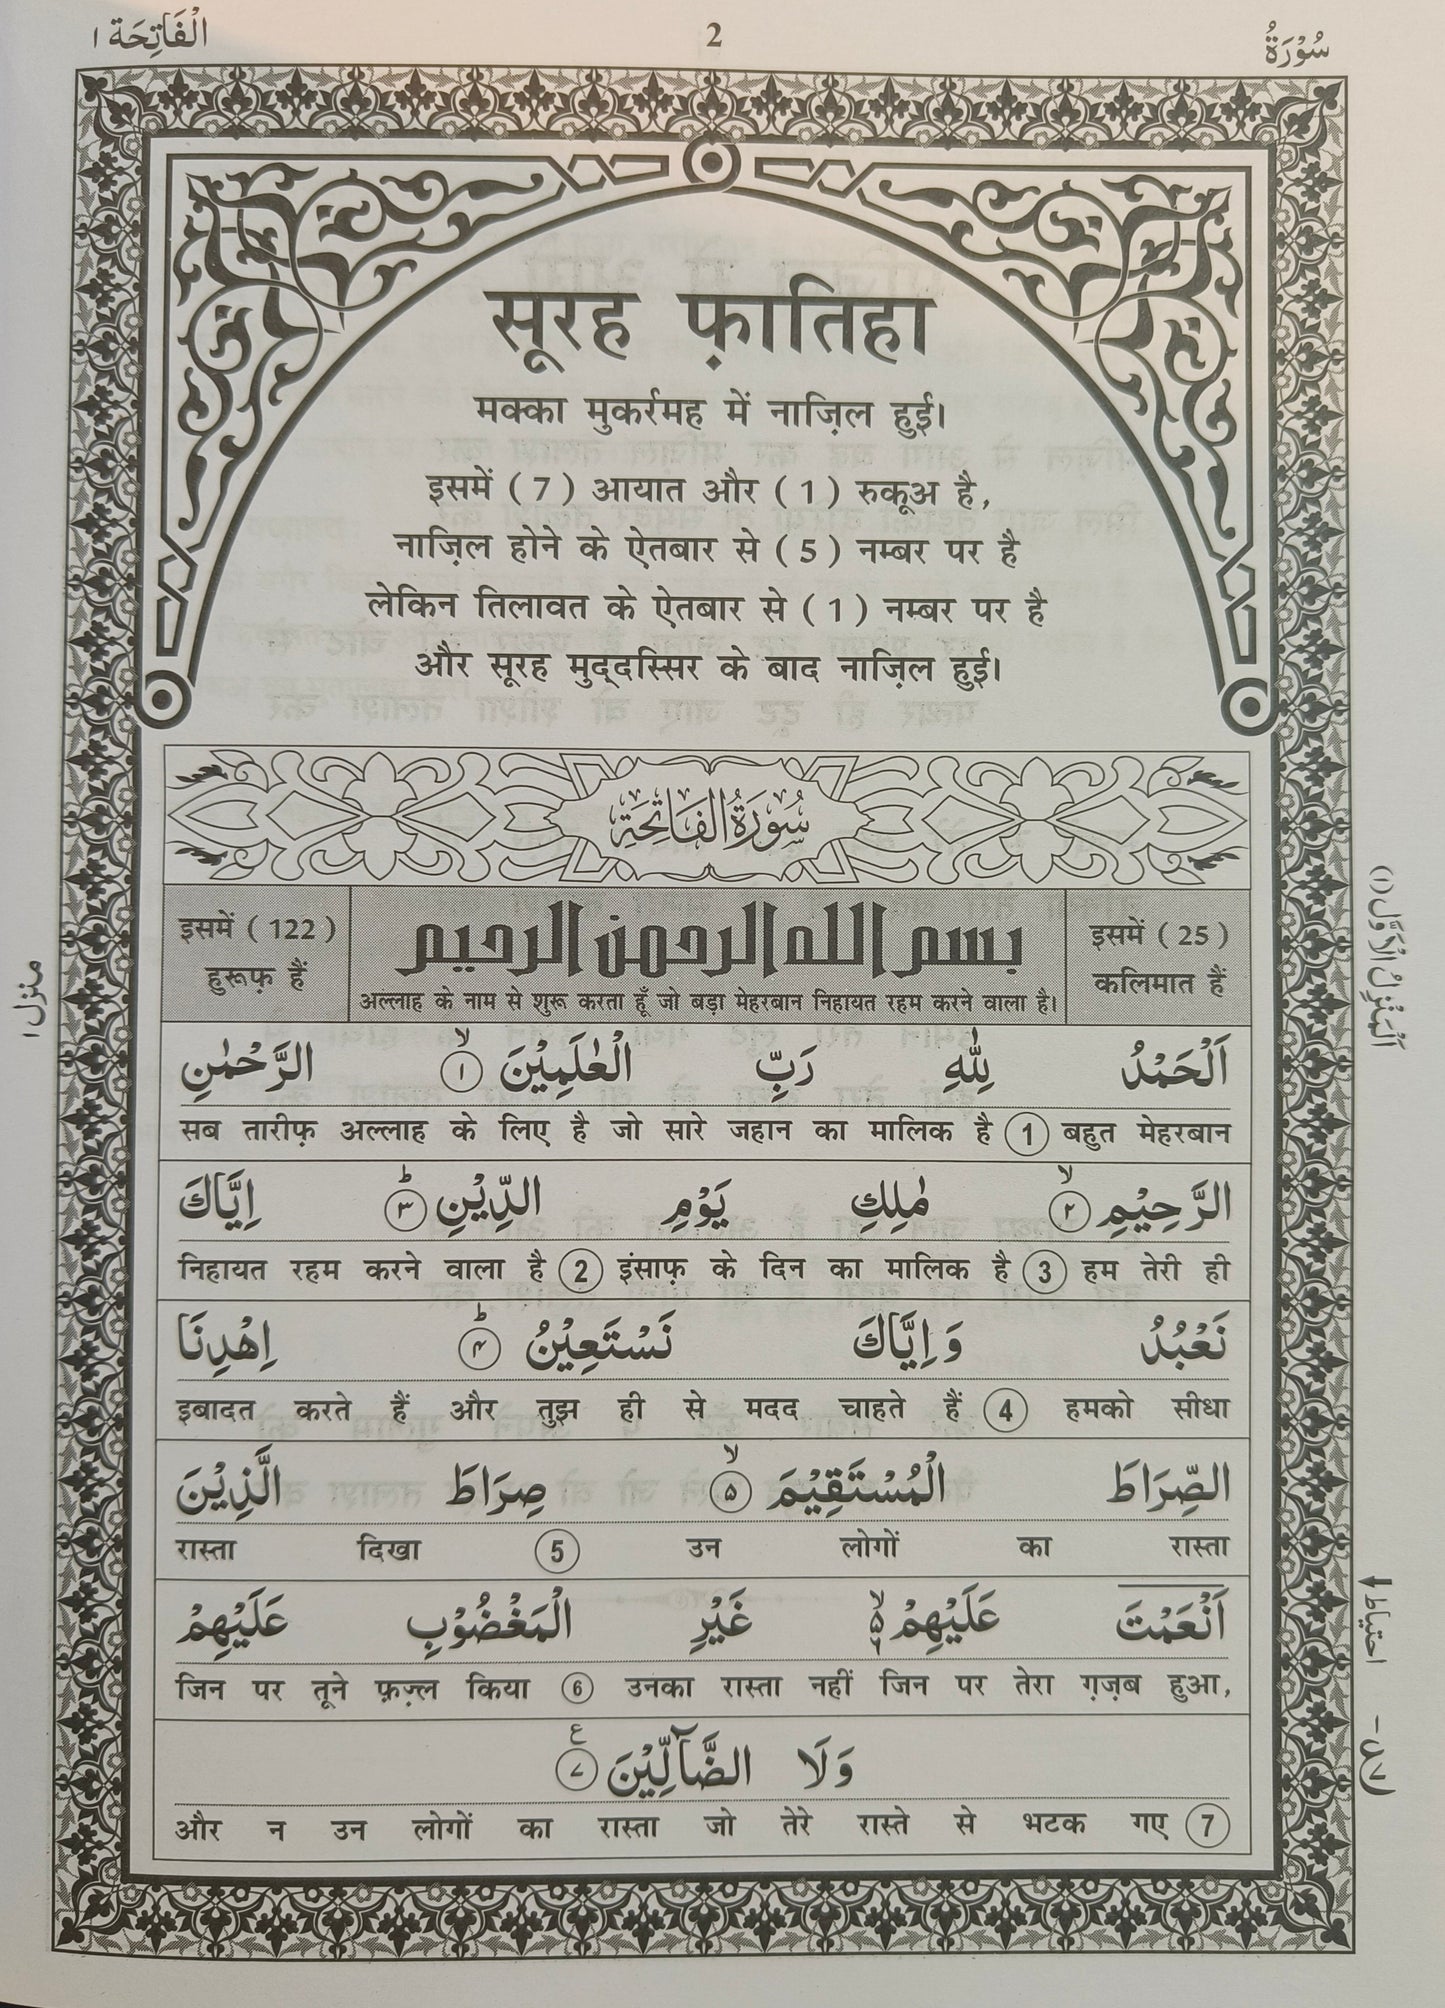 الْفَاتِحَة ١
2
سُوْرَةُ
सूरह फ़ातिहा
मक्का मुकर्रमह में नाज़िल हुई।
इसमें ( 7 ) आयात और ( 1 ) रुकूअ है,
नाज़िल होने के ऐतबार से ( 5 ) नम्बर पर है
लेकिन तिलावत के ऐतबार से ( 1 ) नम्बर पर है
और सूरह मुद्दस्सिर के बाद नाज़िल हुई।
سُوْرَةُ الْفَاتِحَةِ
इसमें ( 122 )
हुरूफ़ हैं
بسم الله الرحمن الرحيم
अल्लाह के नाम से शुरू करता हूँ जो बड़ा मेहरबान निहायत रहम करने वाला है।
इसमें ( 25 )
कलिमात हैं
اَلْحَمْدُ لِلّٰهِ رَبِّ الْعٰلَمِيْنَ ۙ‏ ١ الرَّحْمٰنِ
सब तारीफ़ अल्लाह के लिए है जो सारे जहान का मालिक है 1 बहुत मेहरबान
الرَّحِيْمِ ۙ‏ ٢ مٰلِكِ يَوْمِ الدِّيْنِ ؕ‏ ٣ اِيَّاكَ
निहायत रहम करने वाला है 2 इंसाफ़ के दिन का मालिक है 3 हम तेरी ही
نَعْبُدُ وَ اِيَّاكَ نَسْتَعِيْنُ ؕ‏ ۴ اِهْدِنَا
इबादत करते हैं और तुझ ही से मदद चाहते हैं 4 हमको सीधा
الصِّرَاطَ الْمُسْتَقِيْمَ ۙ‏ ۵ صِرَاطَ الَّذِيْنَ
रास्ता दिखा 5 उन लोगों का रास्ता
اَنْعَمْتَ عَلَيْهِمْ ۙ۬ ۵ ٦ غَيْرِ الْمَغْضُوْبِ عَلَيْهِمْ
जिन पर तूने फ़ज़्ल किया 6 उनका रास्ता नहीं जिन पर तेरा ग़ज़ब हुआ,
وَلَا الضَّآلِّيْنَ ع ٧
और न उन लोगों का रास्ता जो तेरे रास्ते से भटक गए 7
منزل ١
اَلْمَنْزِلُ الْاَوَّلُ (١)
احتیاط